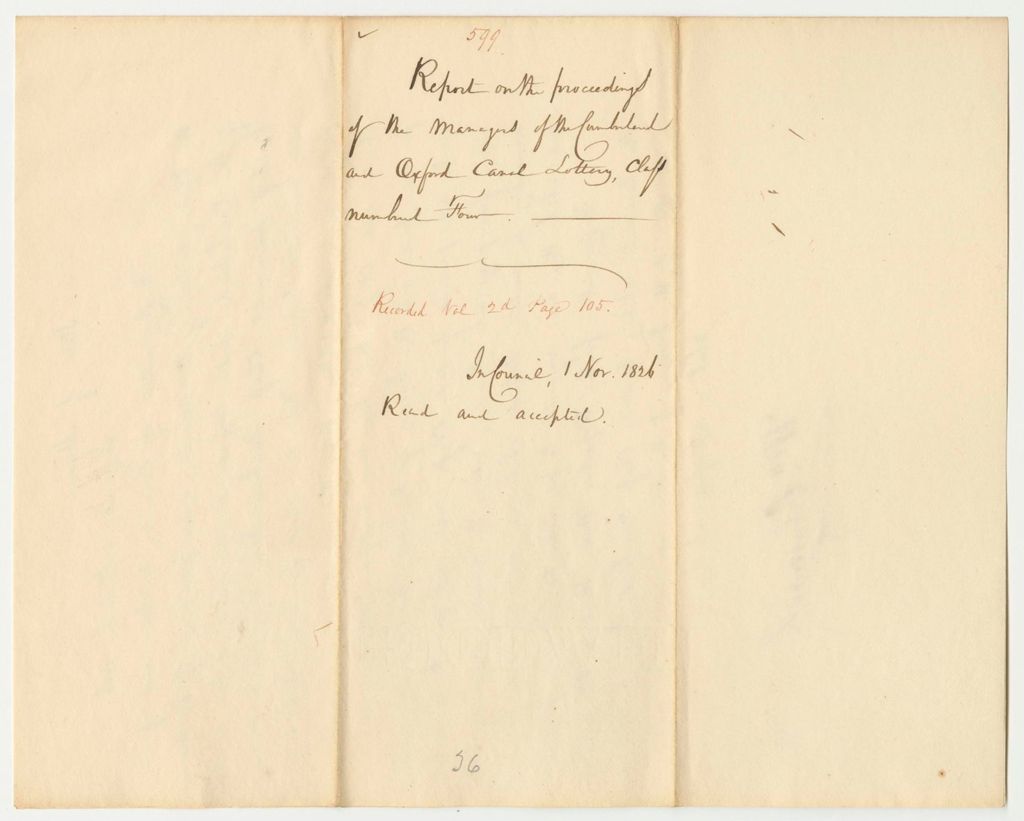 599
Report on the proceedings
of the Managers of the Cumberland
and Oxford Canal Lottery, Class
number Four.
Recorded Vol 2d Page 105.
In Council, 1 Nov. 1826
Read and accepted.
36